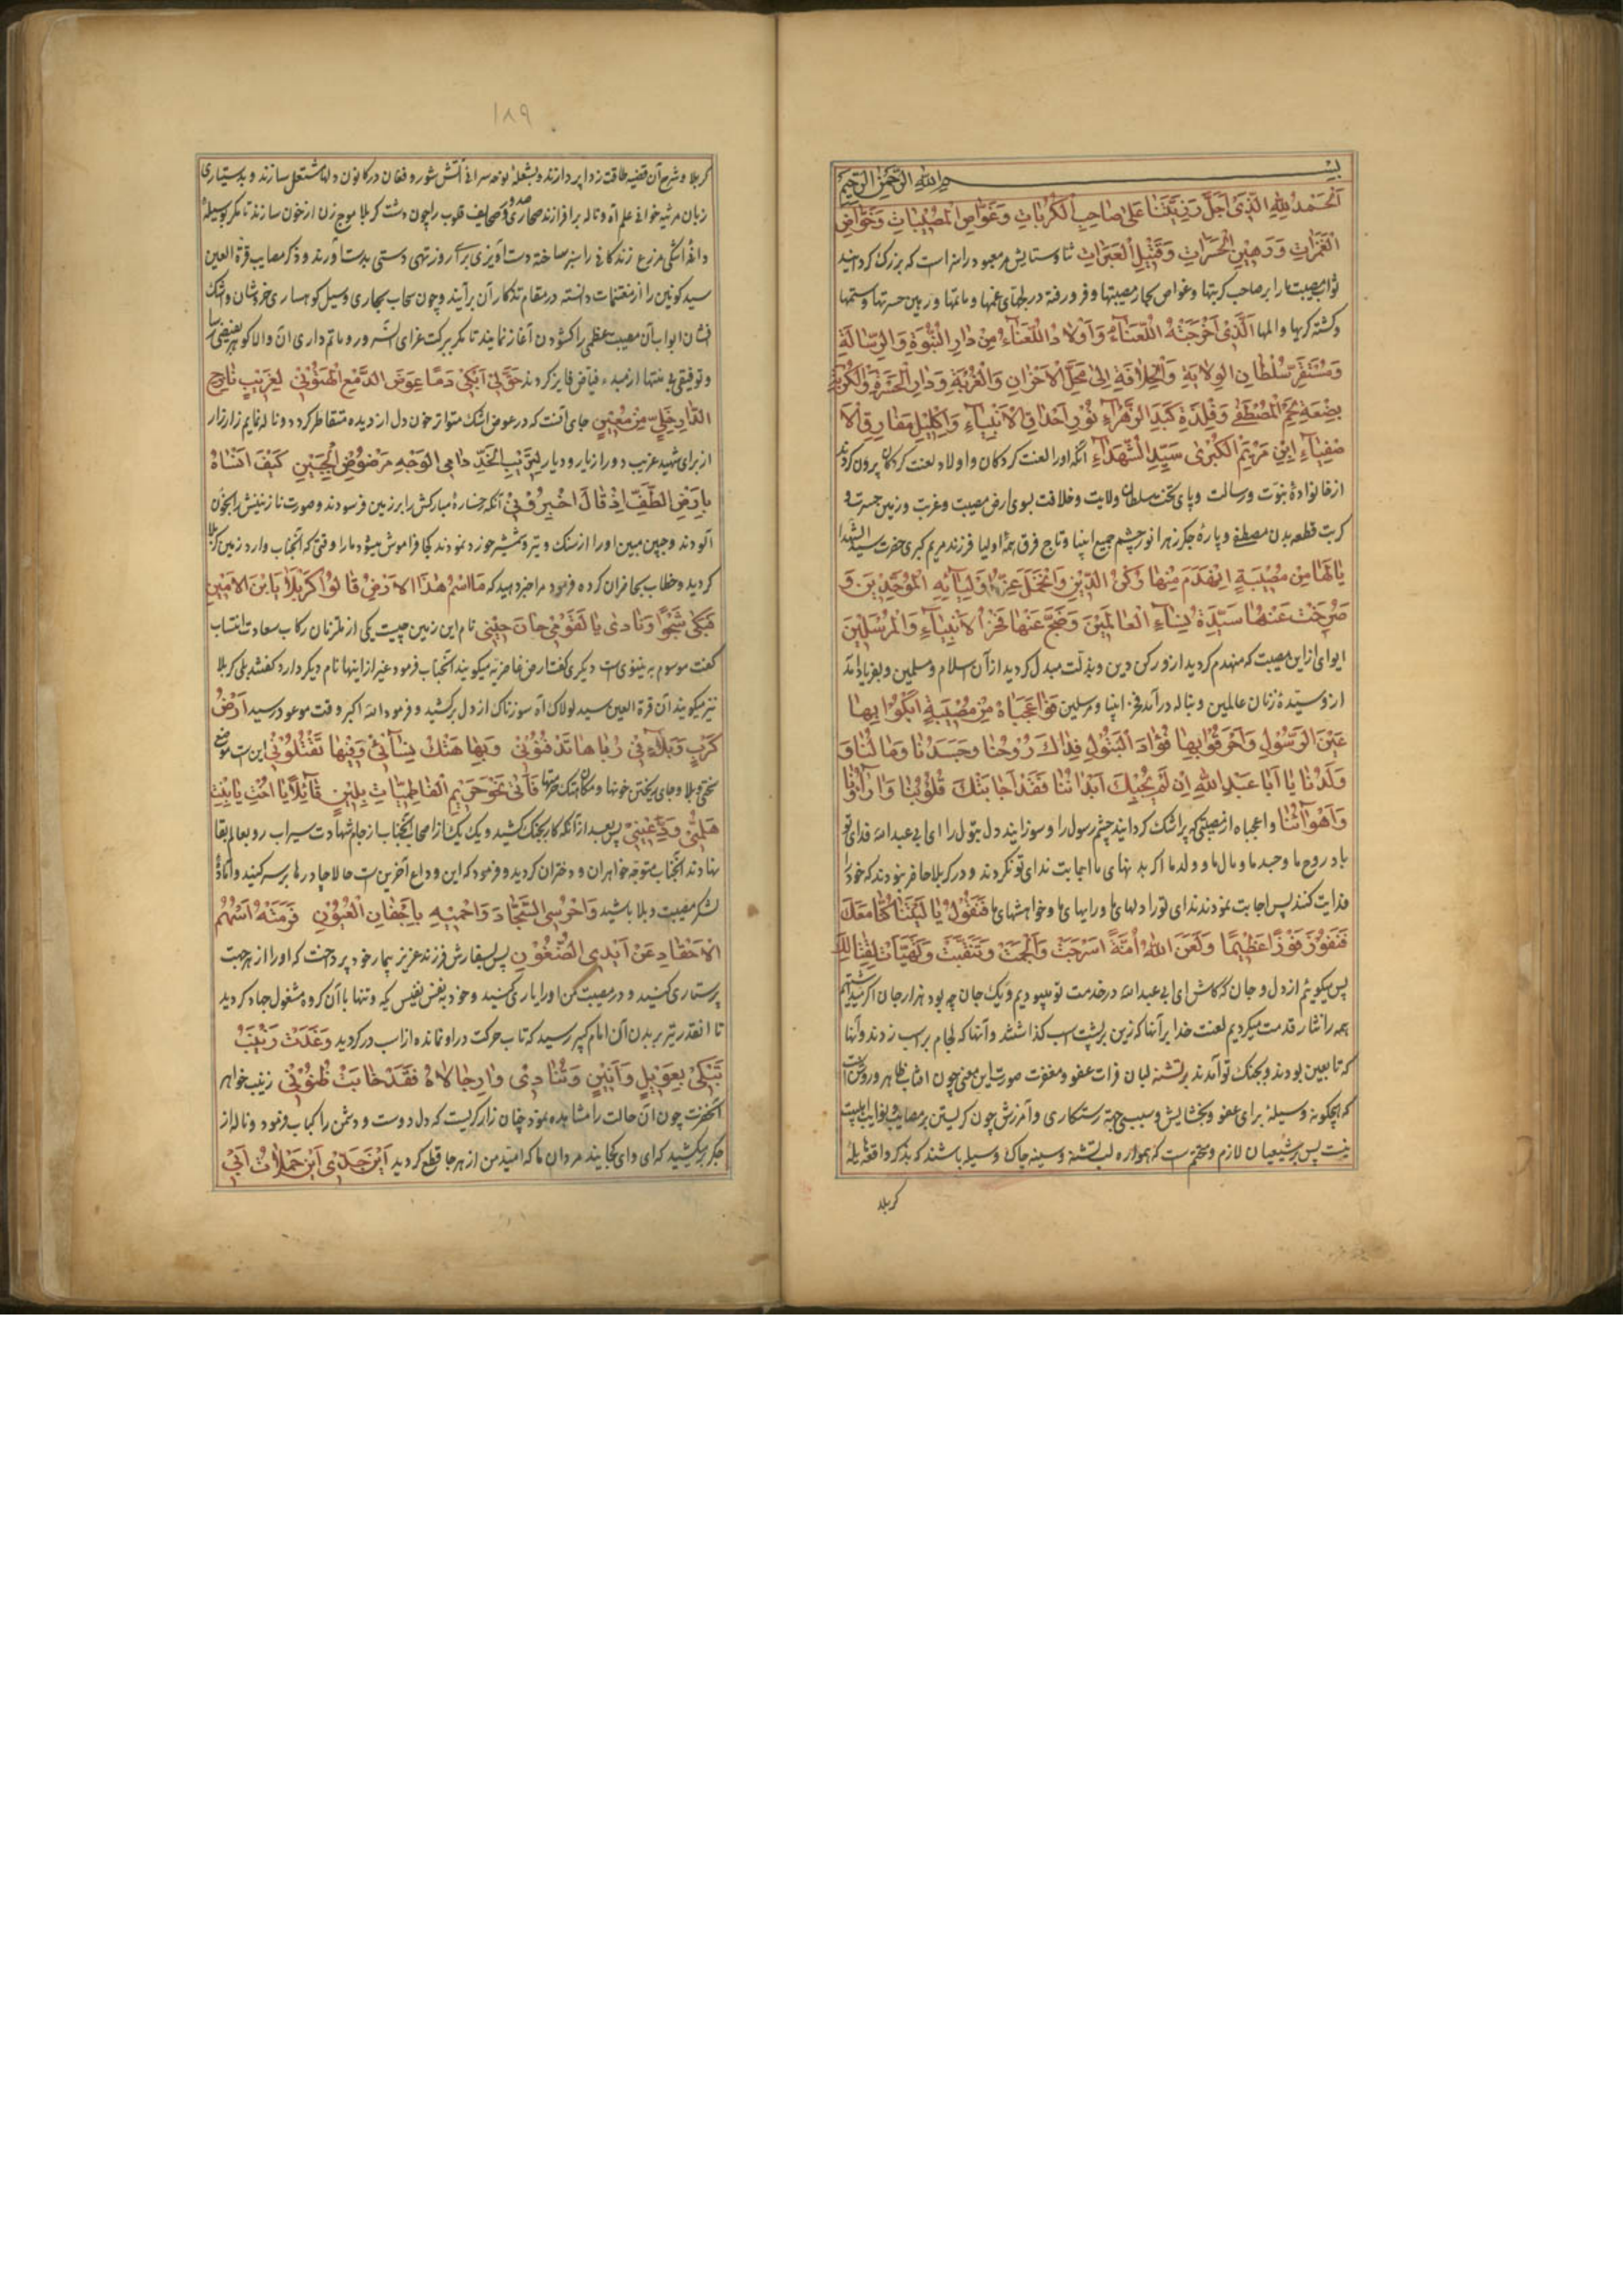 بسم الله الرحمن الرحیم
اَلْحَمْدُ لِلّٰهِ الَّذی اَجَلَّ رَزِیَّتَنا عَلیٰ صاحِبِ الْکُرُباتِ وَغَوّاصِ الْمُصیباتِ وَخَوّاضِ
الْغَمَراتِ وَرَهینِ الْحَسَراتِ وَقَتیلِ الْعَبَراتِ ثنا وستایش مر معبود را سزا است که بزرک کردانید
ثواب مصیبت ما را بر صاحب کربتها وغواص بحار مصیبتها و فرو رفته در غمها و ماتمها و رهین حسرتها وستمها
وکشته کربها والمها اَلَّذی اَخْرَجَتْهُ اللُّعَناءُ وَاَوْلادُ اللُّعَناءِ مِنْ دارِ النُّبُوَّةِ وَالرِّسالَةِ
وَمُسْتَقَرِّ سُلْطانِ الوِلایَةِ وَالْخِلافَةِ اِلیٰ مَحَلِّ الْاَحْزانِ وَالْغُرْبَةِ وَدارِ الْحَسْرَةِ وَالْکُرْبَةِ
بِضْعَةِ لَحْمِ الْمُصْطَفیٰ وَفِلْذَةِ کَبَدِ الزَّهْراءِ نُورِ اَحْداقِ الْاَنْبِیاءِ وَاِکْلیلِ مَفارِقِ الْاَ
صْفِیاءِ ابْنِ مَرْیَمَ الْکُبْریٰ سَیِّدِ الشُّهَداءِ آنکه اورا لعنت کردکان و اولاد لعنت کردکان بیرون کردند
ازخانوادهٔ نبوت ورسالت و پای تخت سلطان ولایت وخلافت بسوی ارض مصیبت وغربت و زمین حسرت و
کربت قطعه بدن مصطفی و پارهٔ جکر زهرا نور چشم جمیع انبیا و تاج فرق همه اولیا فرزند مریم کبری حضرت سید الشهدا
یا لَها مِنْ مُصیبَةٍ اِنْهَدَمَ مِنْها رُکْنُ الدّینِ وَ عَزّ اَوْلِیائِهِ الْمُوَحِّدینَ وَ
صَرَخَتْ عَنْها سَیِّدَةُ نِساءِ الْعالَمینَ وَضَجَّ عَنْها فَخْرُ الْاَنْبِیاءِ وَالْمُرْسَلینَ
ایوای ازاین مصیبت که منهدم کردید ازو رکن دین و بذلت مبدل کردید ازآن اسلام و مسلمین و بفریاد آمد
ازو سیّدهٔ زنان عالمین و بناله درآمد فخر انبیا ومرسلین فَوا عَجَباهُ مِنْ مُصیبَةٍ اَبْکَوْا بِها
عَیْنَ الرَّسُولِ وَاَحْرَقُوا بِها فُؤادَ الْبَتُولِ فِداکَ رُوحُنا وَجَسَدُنا وَمالُنا وَ
وَلَدُنا یا اَبا عَبْدِ اللّٰهِ اِنْ لَمْ یُجِبْکَ اَبْدانُنا فَقَدْ اَجابَتْکَ قُلُوبُنا وَ اٰراؤُنا
وَاَهْوآئُنا واعجباه ازمصیبتی که پراشک کردانیدند چشم رسول را وسوزانیدند دل بتول را ای ابی عبد الله فدای تو
باد روح ما وجسد ما و مال ما و ولد ما اکر بدنهای ما اجابت ندای تو نکردند و در کربلا حاضر نبودند که خود را
فدایت کنند پس اجابت نمودند ندای تورا دلهای ما ورایهای ما وخواهشهای ما فَنَقُولُ یا لَیْتَنا کُنّا مَعَکَ
فَنَفُوزَ فَوْزاً عَظیماً وَلَعَنَ اللّٰهُ اُمَّةً اَسْرَجَتْ وَاَلْجَمَتْ وَتَنَقَّبَتْ وَتَهَیَّاَتْ لِقِتالِکَ
پس میکوئیم ازدل وجان که کاش ای ابی عبد الله درخدمت تو میبودیم و یک جان چه بود هزار جان اکر میداشتیم
همه را نثار قدمت میکردیم لعنت خدا بر آنها که زین بر پشت اسب کذاشتند و آنها که لجام بر اسب زدند و آنها
که تابعین بودند وبجنک تو آمدند بر تشنه لبان فرات عفو ومغفرت صورت این معنی چون افتاب ظاهر و روشن است
که هیچکونه وسیلهٔ برای عفو وبخشایش و سببی جهة رستکاری و آمرزش چون کریستن بر مصایب اهلبیت
نیست پس بر شیعیان لازم و متحتم است که همواره لب تشنه وسینه چاک وسیله باشند که بذکر واقعه هایلهٔ
کربلا
۱۸۹
کربلا وشرح آن قضیه طاقت زدا پردازند وبشعلهٔ نوحه سرائی آتش شور و فغان در کانون دلها مشتعل سازند و بدستیاری
زبان مرثیه خوانی علم آه و ناله برافرازند وصحایف قلوب را چون دشت کربلا موج زن ازخون سازند تا مکر بوسیلهٔ
دانهٔ اشکی مزرع زندکانی را سبز ساخته دست آویزی برای روز تهی دستی بدست آورند وذکر مصایب قرة العین
سید کونین را از مغتنمات دانسته در مقام تذکار آن برآیند وچون سحاب بهاری وسیل کوهساری خروشان و اشک
فشان ابواب آن مصیبت عظمی را کشودن آغاز نمایند تا مکر ببرکت عزای سرور و ماتم داری آن والا کوهر بفیضی
وتوفیقی بی منتها از مبدء فیاض فایز کردند حَقَّ لی اَبْکی دَماً عِوَضَ الدَّمْعِ الْهَتُونِ لِغَریبٍ نازِحِ
الدّارِ خَلِیٍّ مِنْ مُعینٍ جای آنست که در عوض اشک متواتر خون دل ازدیده متقاطر کردد و ناله نمایم زار زار
ازبرای شهید غریب دور ازیار و دیار لِتَریبِ الْخَدِّ دامِی الْوَجْهِ مَرْضُوضِ الْجَبینِ کَیْفَ اَنْساهُ
بِاَرْضِ الطَّفِّ اِذْ قالَ اَخْبِرُونی آنکه رخسارهٔ مبارکش را بر زمین فرسودند وصورت نازنینش را بخون
آلودند وجبین مبین اورا ازسنک و تیر وشمشیر خورد نمودند کجا فراموش میشود مارا وقتی که آنجناب وارد زمین کربلا
کردید وخطاب بحاضران کرده فرمود مرا خبر دهید که مَا اسْمُ هٰذَا الْاَرْضِ قالُوا کَرْبَلا یَابْنَ الْاَمینِ
فَبَکیٰ شَجْواً وَنادیٰ یا لَقَوْمی حانَ حینی نام این زمین چیست یکی از ملتزمان رکاب سعادت انتساب
کفت موسوم به نینوی است دیکری کفت ارض غاضریه میکویند آنجناب فرمود غیر ازاینها نام دیکر دارد کفتند بلی کربلا
نیز میکویند آن قرة العین سید لولاک آه سوزناک ازدل برکشید و فرمود الله اکبر وقت موعود رسید اَرْضُ
کَرْبٍ وَبَلاءٍ فی رُباها تَدْفِنُونی وَبِها هَتْکُ نِسائی وَفیها تَقْتُلُونی این است موضع
سختی وبلا و جای ریختن خونها و مکان هتک حرمتها فَاَتیٰ نَحْوَ حَریمِ الْفاطِمِیّاتِ بِلینٍ قائِلاً یا اُخْتِ یا بِنْتِ
هَلُمّی وَدِّعینی پس بعد ازآنکه کار بجنک کشید ویک یک ازاصحاب آنجناب ازجام شهادت سیراب رو بعالم بقا
نهادند آنجناب متوجه خواهران و دختران کردید وفرمود که این وداع آخرین است حالا چادرها برسر کنید وآمادهٔ
لشکر مصیبت وبلا باشید وَاحْرُسِی السَّجّادَ وَاحْمیهِ بِاَجْفانِ الْعُیُونِ فَرَمَتْهُ اَسْهُمُ
الْاَحْقادِ عَنْ اَیْدِی الضُّغُونِ پس بسفارش فرزند عزیز بیمار خود پرداخت که اورا از هر جهت
پرستاری کنید و در مصیبت من اورا یاری کنید وخود بنفس نفیس یکه و تنها باآن کروه مشغول جهاد کردید
تا انقدر تیر بر بدن آن امام کبیر رسید که تاب حرکت دراو نمانده ازاسب درکردید وَغَدَتْ زَیْنَبُ
تَبْکی بِعَویلٍ وَاَنینٍ وَتُنادی وا رِجالاهُ فَقَدْ خابَتْ ظُنُونی زینب خواهر
آنحضرت چون آن حالت را مشاهده نمود چنان زار کریست که دل دوست و دشمن را کباب فرمود و ناله از
جکر برمیکشید که ای وای کجایند مردان ما که امید من ازهرجا قطع کردید اَیْنَ جَدّی اَیْنَ حَمَلاتُ اَبی